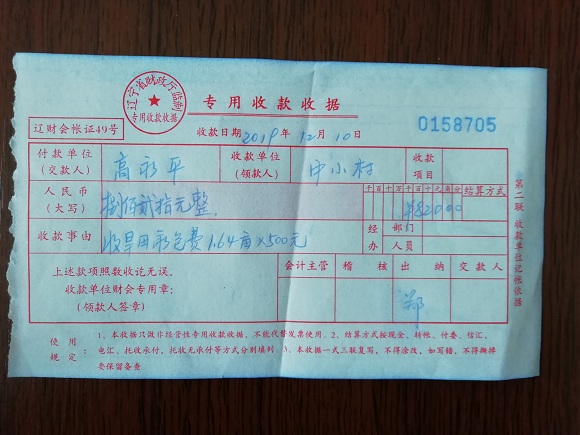 辽宁省财政厅监制
专用收款收据
专用收款收据
辽财会帐证49号
收款日期 2019年 12月 10日
0158705
付款单位
(交款人)
高永平
收款单位
(领款人)
中小村
收款
项目
人民币
(大写)
捌佰贰拾元整
千百十万千百十元角分
¥82000
结算方式
收款事由
收旱田承包费1.64亩×500元
经 部门
办 人员
上述款项照数收讫无误。
收款单位财会专用章:
(领款人签章)
会计主管
稽 核
出 纳
交 款 人
郑
第二联 收款单位记帐依据
使 用
规 定:
1、本收据只做非经营性专用收款收据,不能代替发票使用。2、结算方式按现金,转帐、付委、信汇、
电汇、托收承付,托收无承付等方式分别填列。3、本收据一式三联复写,不得涂改,如写错,不得撕掉
要保留备查